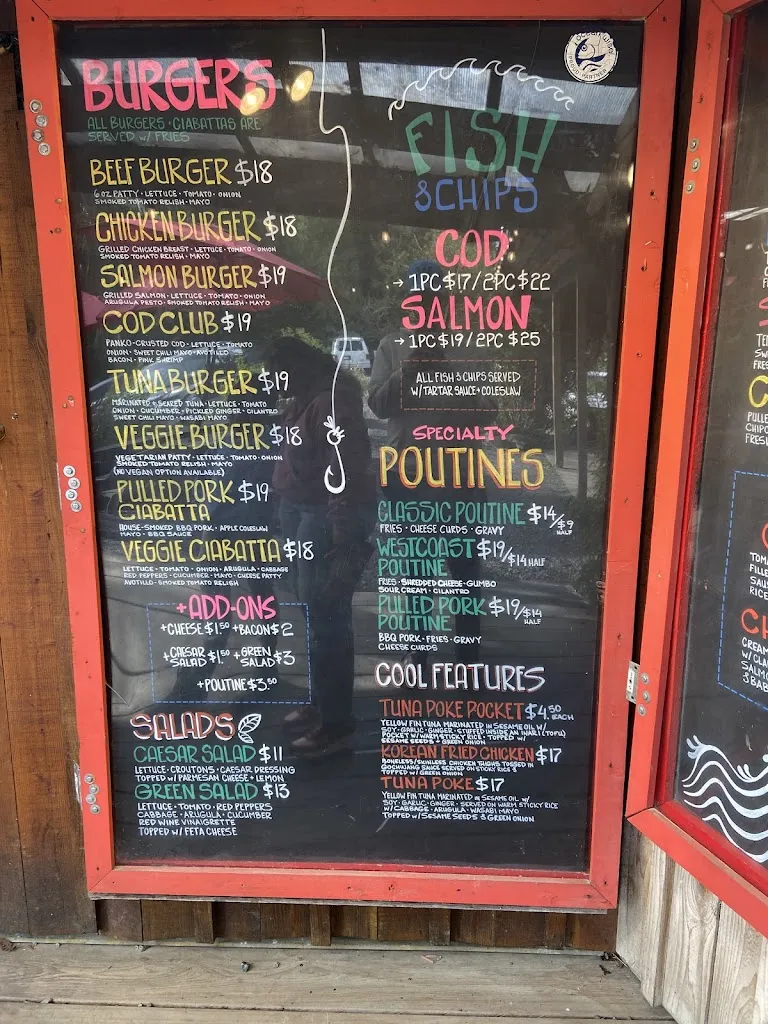 BURGERS
ALL BURGERS · CIABATTAS ARE
SERVED W/ FRIES
BEEF BURGER $18
6 OZ PATTY · LETTUCE · TOMATO · ONION
SMOKED TOMATO RELISH · MAYO
CHICKEN BURGER $18
GRILLED CHICKEN BREAST · LETTUCE · TOMATO · ONION
SMOKED TOMATO RELISH · MAYO
SALMON BURGER $19
GRILLED SALMON · LETTUCE · TOMATO · ONION
ARUGULA PESTO · SMOKED TOMATO RELISH · MAYO
COD CLUB $19
PANKO-CRUSTED COD · LETTUCE · TOMATO
ONION · SWEET CHILI MAYO · AVOTILLO
BACON · PINK SHRIMP
TUNA BURGER $19
MARINATED + SEARED TUNA · LETTUCE · TOMATO
ONION · CUCUMBER · PICKLED GINGER · CILANTRO
SWEET CHILI MAYO · WASABI MAYO
VEGGIE BURGER $18
VEGETARIAN PATTY · LETTUCE · TOMATO · ONION
SMOKED TOMATO RELISH · MAYO
(NO VEGAN OPTION AVAILABLE)
PULLED PORK $19
CIABATTA
HOUSE-SMOKED BBQ PORK · APPLE COLESLAW
MAYO · BBQ SAUCE
VEGGIE CIABATTA $18
LETTUCE · TOMATO · ONION · ARUGULA · CABBAGE
RED PEPPERS · CUCUMBER · MAYO · CHEESE PATTY
AVOTILLO · SMOKED TOMATO RELISH
+ADD-ONS
+CHEESE $1.50 +BACON $2
+CAESAR SALAD $1.50 +GREEN SALAD $3
+POUTINE $3.50
SALADS
CAESAR SALAD $11
LETTUCE · CROUTONS · CAESAR DRESSING
TOPPED W/ PARMESAN CHEESE + LEMON
GREEN SALAD $13
LETTUCE · TOMATO · RED PEPPERS
CABBAGE · ARUGULA · CUCUMBER
RED WINE VINAIGRETTE
TOPPED W/ FETA CHEESE
FISH
& CHIPS
COD
→ 1PC $17 / 2PC $22
SALMON
→ 1PC $19 / 2PC $25
ALL FISH & CHIPS SERVED
W/ TARTAR SAUCE + COLESLAW
SPECIALTY
POUTINES
CLASSIC POUTINE $14/$9 HALF
FRIES · CHEESE CURDS · GRAVY
WESTCOAST $19/$14 HALF
POUTINE
FRIES · SHREDDED CHEESE · GUMBO
SOUR CREAM · CILANTRO
PULLED PORK $19/$14 HALF
POUTINE
BBQ PORK · FRIES · GRAVY
CHEESE CURDS
COOL FEATURES
TUNA POKE POCKET $4.50 EACH
YELLOW FIN TUNA MARINATED IN SESAME OIL W/
SOY · GARLIC · GINGER · STUFFED INSIDE AN INARI (TOFU)
POCKET W/ WARM STICKY RICE · TOPPED W/
SESAME SEEDS + GREEN ONION
KOREAN FRIED CHICKEN $17
BONELESS/SKINLESS CHICKEN THIGHS TOSSED IN
GOCHUJANG SAUCE SERVED ON STICKY RICE &
TOPPED W/ GREEN ONION
TUNA POKE $17
YELLOW FIN TUNA MARINATED IN SESAME OIL W/
SOY · GARLIC · GINGER · SERVED ON WARM STICKY RICE
W/ CABBAGE · ARUGULA · WASABI MAYO
TOPPED W/ SESAME SEEDS & GREEN ONION